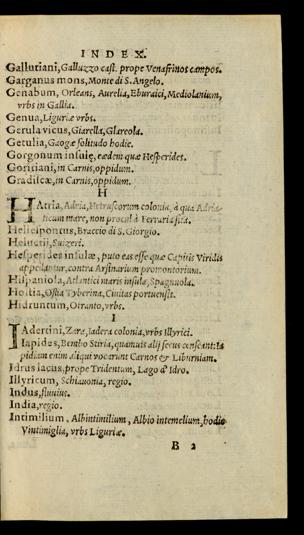 INDEX.
Gallutiani, Galluzzo cast. prope Venafrinos campos.
Garganus mons, Monte di S. Angelo.
Genabum, Orleans, Aurelia, Eburaici, Mediolanium,
vrbs in Gallia.
Genua, Liguriæ vrbs.
Gerula vicus, Giarella, Glareola.
Getulia, Gaogæ solitudo hodie.
Gorgonum insulę, eædem quæ Hesperides.
Goriciani, in Carnis, oppidum.
Gradiscæ, in Carnis, oppidum.
H
HAtria, Adria, Hetruscorum colonia, à qua Adria-
ticum mare, non procul à Ferraria sita.
Hellespontus, Braccio di S. Giorgio.
Heluetii, Suizeri.
Hesperides insulæ, puto eas esse quæ Capitis Viridis
appellantur, contra Arsinarium promontorium.
Hispaniola, Atlantici maris insula, Spagnuola.
Hostia, Ostia Tyberina, Ciuitas portuensis.
Hidruntum, Otranto, vrbs.
I
IAdertini, Zara, Iadera colonia, vrbs Illyrici.
Iapides, Bembo Stiria, quamuis alij secus censeant: Ia
pidiam enim aliqui vocarunt Carnos & Liburniam.
Idrus lacus, prope Tridentum, Lago d' Idro.
Illyricum, Schiauonia, regio.
Indus, fluuius.
India, regio.
Intimilium, Albintimilium, Albio intemelium, hodie
Vintimiglia, vrbs Liguriæ.
B 2